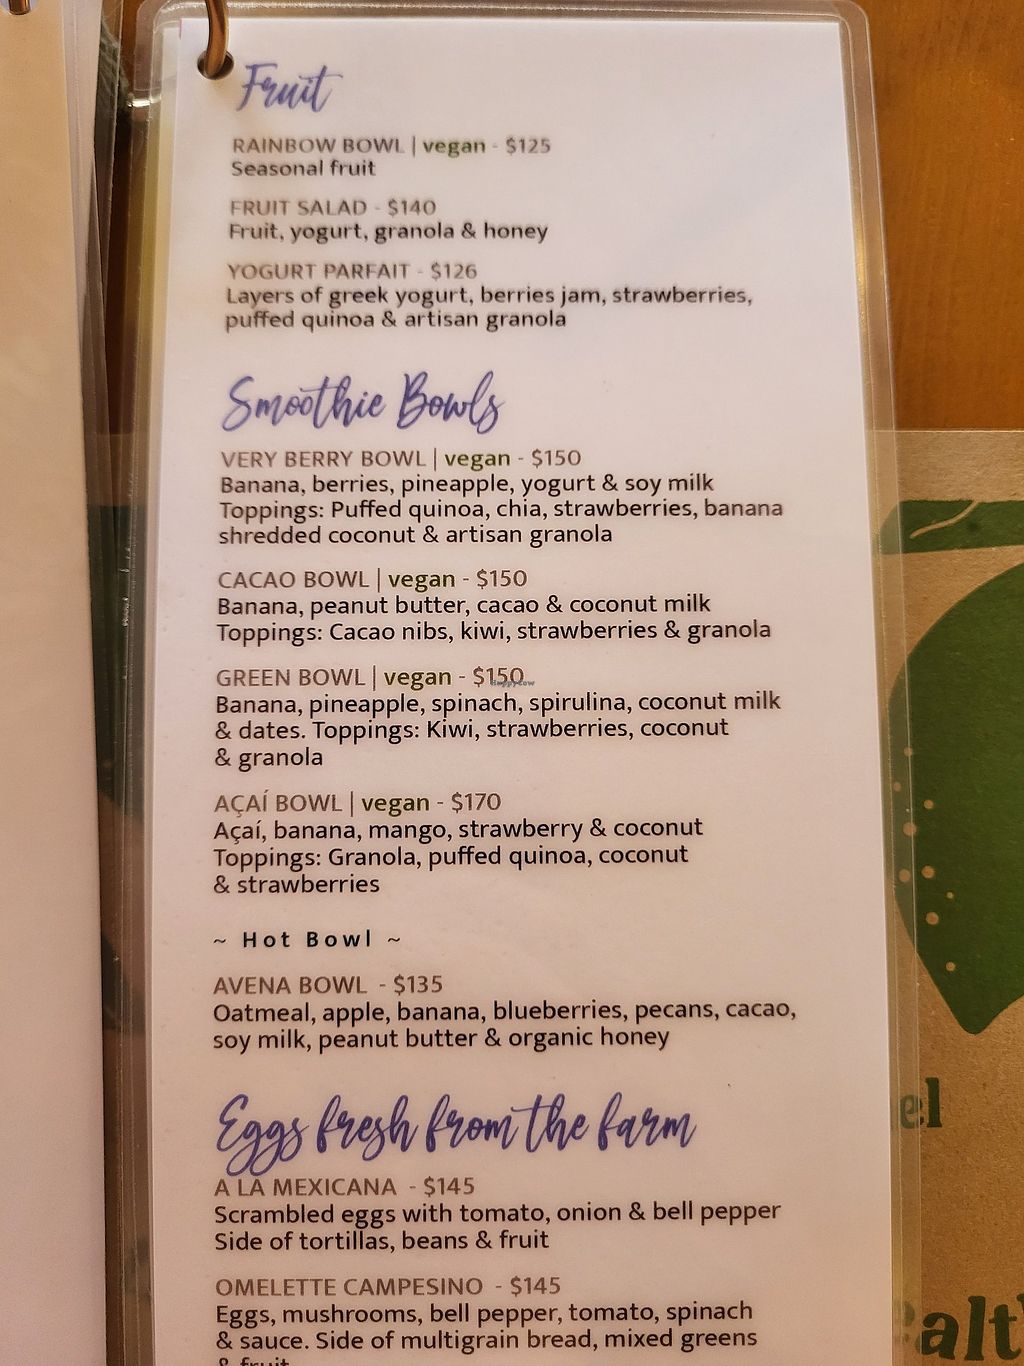 Fruit
RAINBOW BOWL | vegan - $125
Seasonal fruit
FRUIT SALAD - $140
Fruit, yogurt, granola & honey
YOGURT PARFAIT - $126
Layers of greek yogurt, berries jam, strawberries,
puffed quinoa & artisan granola
Smoothie Bowls
VERY BERRY BOWL | vegan - $150
Banana, berries, pineapple, yogurt & soy milk
Toppings: Puffed quinoa, chia, strawberries, banana
shredded coconut & artisan granola
CACAO BOWL | vegan - $150
Banana, peanut butter, cacao & coconut milk
Toppings: Cacao nibs, kiwi, strawberries & granola
GREEN BOWL | vegan - $150
HappyCow
Banana, pineapple, spinach, spirulina, coconut milk
& dates. Toppings: Kiwi, strawberries, coconut
& granola
AÇAÍ BOWL | vegan - $170
Açaí, banana, mango, strawberry & coconut
Toppings: Granola, puffed quinoa, coconut
& strawberries
~ Hot Bowl ~
AVENA BOWL - $135
Oatmeal, apple, banana, blueberries, pecans, cacao,
soy milk, peanut butter & organic honey
Eggs fresh from the farm
A LA MEXICANA - $145
Scrambled eggs with tomato, onion & bell pepper
Side of tortillas, beans & fruit
OMELETTE CAMPESINO - $145
Eggs, mushrooms, bell pepper, tomato, spinach
& sauce. Side of multigrain bread, mixed greens
& fruit